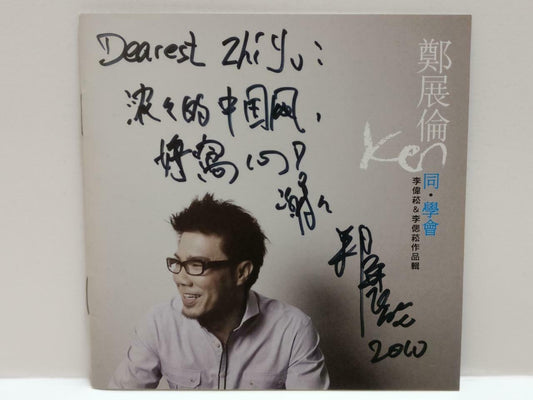 Dearest Zhi Yu:
浓々的中国风,
好窝心!
谢々
2010
鄭展倫
Ken
同·學會
李偉菘&李偲菘作品輯